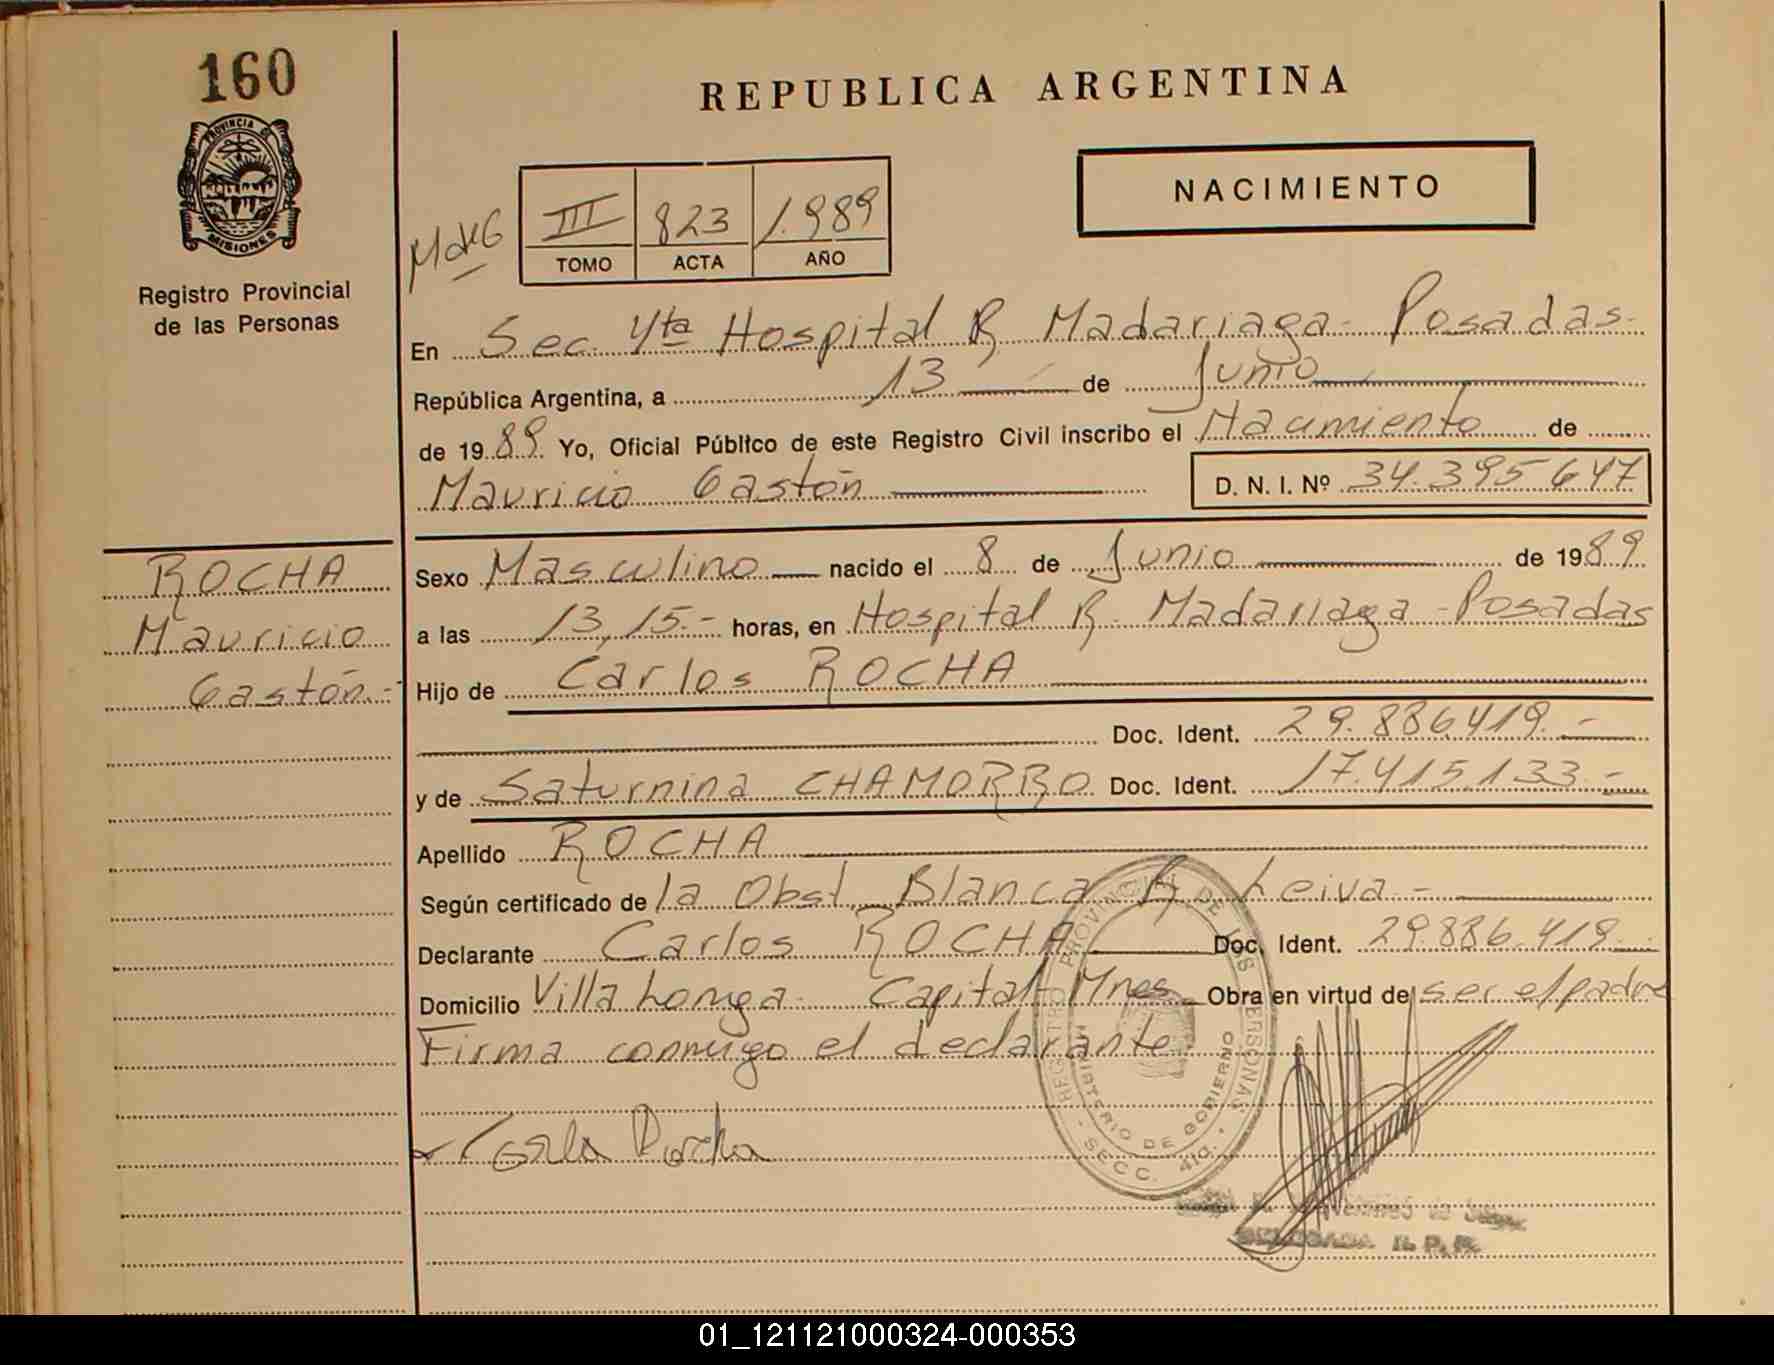 160
PROVINCIA DE
MISIONES
Registro Provincial
de las Personas
REPUBLICA ARGENTINA
NACIMIENTO
III 823 1.989
TOMO ACTA AÑO
En Sec. 4ta Hospital R. Madariaga - Posadas.
República Argentina, a 13 de Junio
de 1989. Yo, Oficial Público de este Registro Civil inscribo el Nacimiento de
Mauricio Gastón D. N. I. Nº 34.395.647
ROCHA
Mauricio
Gastón.-
Sexo Masculino nacido el 8 de Junio de 1989
a las 13,15.- horas, en Hospital R. Madariaga - Posadas
Hijo de Carlos ROCHA
Doc. Ident. 29.886.419.-
y de Saturnina CHAMORRO Doc. Ident. 17.415.133.-
Apellido ROCHA
Según certificado de la Obst. Blanca R. Leiva.-
Declarante Carlos ROCHA Doc. Ident. 29.886.419
Domicilio Villa Longa - Capital - Mnes. Obra en virtud de ser el padre
Firma conmigo el declarante.
REGISTRO PROVINCIAL DE LAS PERSONAS
MINISTERIO DE GOBIERNO
SECC. 4ta.
Rocha
R. P. P.
01_121121000324-000353